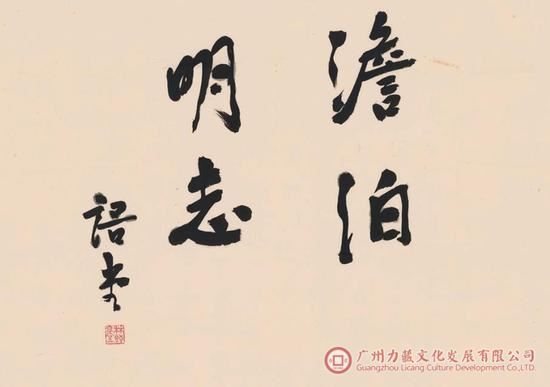 澹泊
明志
語堂
广州力藏文化发展有限公司
Guangzhou Licang Culture Development Co.,LTD